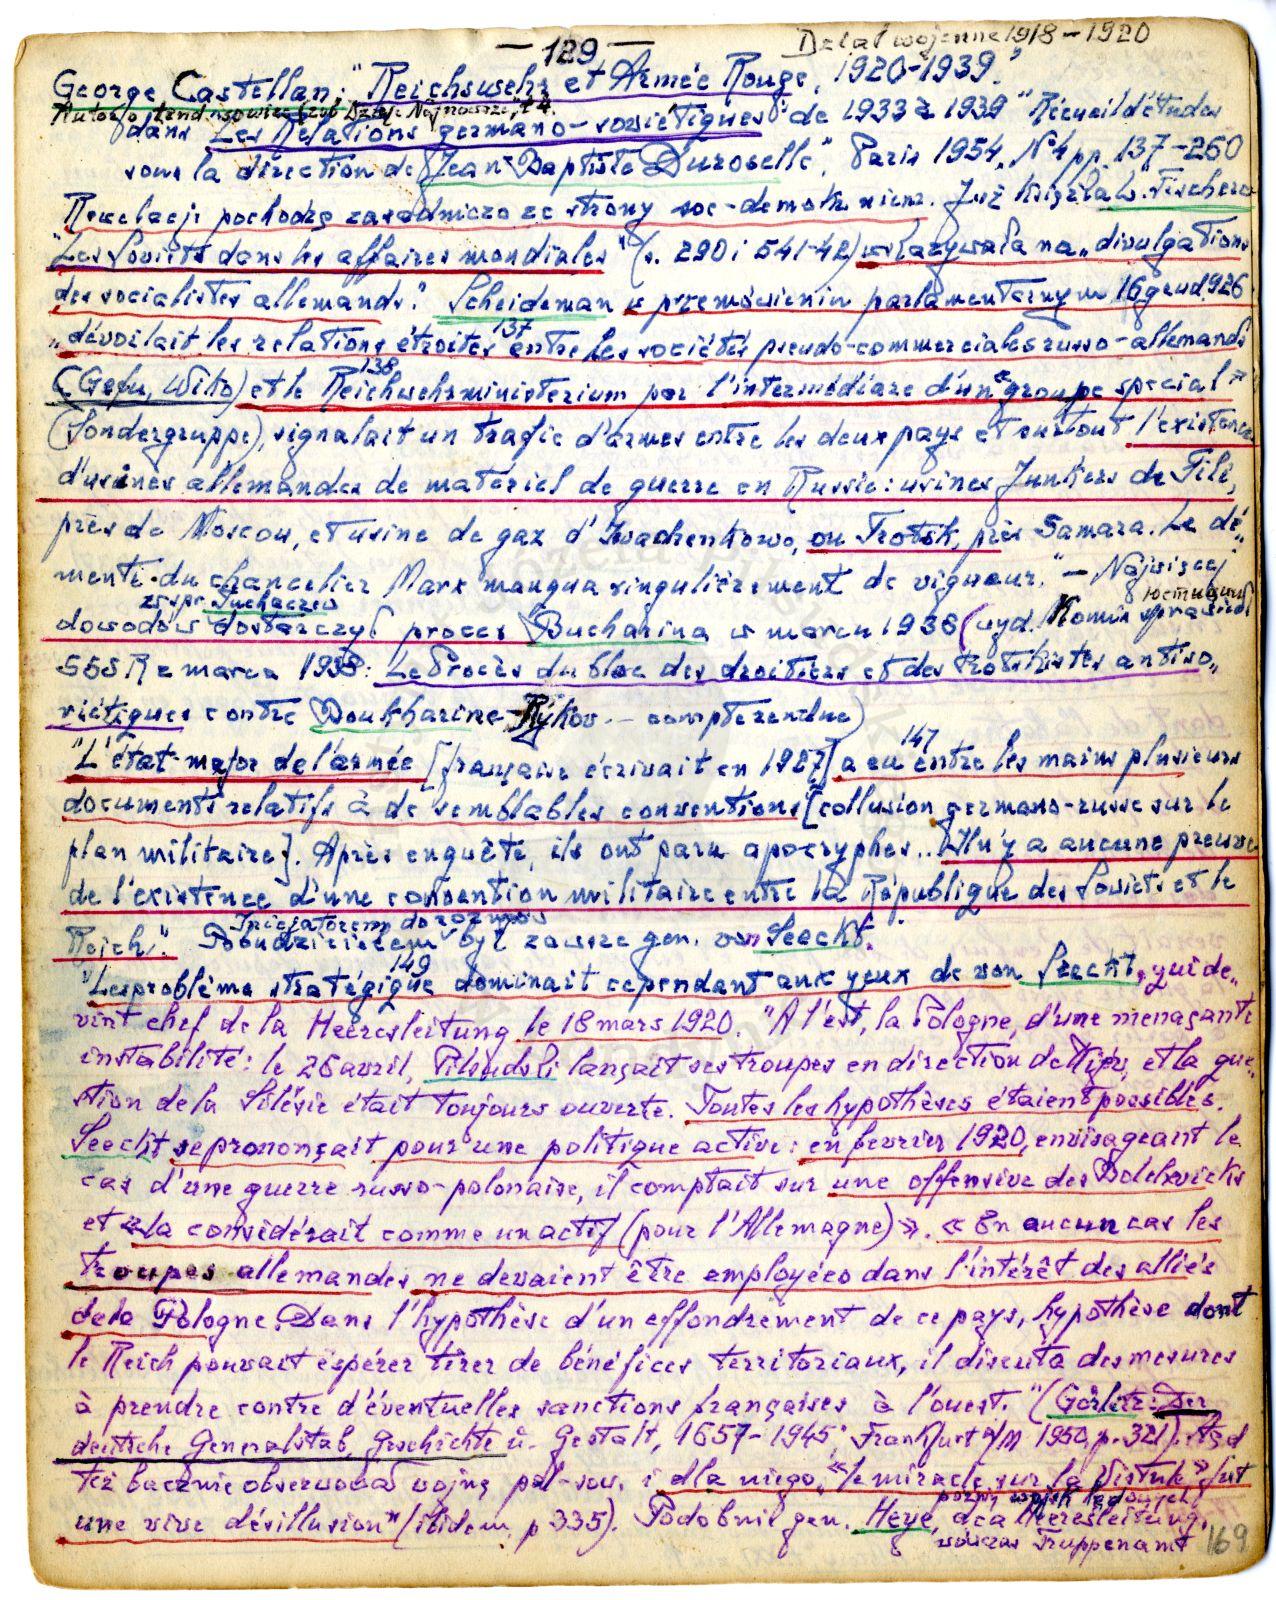 — 129 —
Działal wojenne 1918–1920
George Castellan: "Reichswehr et Armée Rouge, 1920–1939."
dans "Les Relations germano-soviétiques" de 1933 à 1939 "Recueil d'études
sous la direction de Jean-Baptiste Duroselle", Paris 1954, N°4 pp. 137–260
Rewelacje pochodzą zasadniczo ze strony soc-demokr. niem. Już książka L. Fischera
"Les Soviets dans les affaires mondiales" (s. 290 i 541-42) wskazywała na „divulgations
des socialistes allemands." Scheideman w przemówieniu parlamentarnym 16 grud. 926
„dévoilait les relations étroites entre les sociétés pseudo-commerciales russo-allemands
137
(Gefu, Wiko) et le Reichswehrministerium par l'intermédiaire d'un "groupe special"
138
(Sondergruppe), signalait un trafic d'armes entre les deux pays et surtout l'existence
d'usines allemandes de matériel de guerre en Russie: usines Junkers de Fili,
près de Moscou, et usine de gaz d'Iwachenkowo, ou Trotsk, près Samara. Le dé-
menti du chancelier Marx manqua singulièrement de vigueur." — Najwięcej
ze spr. Tuchaczew
dowodów dostarczył proces Bucharina w marcu 1938 (wyd. Komis sprawiedl
юстиции
SSSR z marca 1938: Le Procès du bloc des droitiers et des trotskistes antiso-
viétiques contre Boukharine-Rykov – compte rendue)
"L'état-major de l'armée [française écrivait en 1927] a eu entre les mains plusieurs
147
documents relatifs à de semblables conventions [collusion germano-russe sur le
plan militaire]. Après enquête, ils ont paru apocryphes.. Il n'y a aucune preuve
de l'existence d'une convention militaire entre la République des Soviets et le
Inicjatorem do rozmów
Reich". Pobudzicielem był zawsze gen. von Seeckt.
149
"Le problème stratégique dominait cependant aux yeux de von Seeckt, qui de-
vint chef de la Heeresleitung le 18 mars 1920. "A l'est, la Pologne, d'une menaçante
instabilité: le 26 avril, Pilsudski lançait ses troupes en direction de Kiev, et la que-
stion de la Silésie était toujours ouverte. Toutes les hypothèses étaient possibles.
Seeckt se prononçait pour une politique active: en fevrier 1920, envisageant le
cas d'une guerre russo-polonaise, il comptait sur une offensive des Bolchevicks
et «la considérait comme un actif (pour l'Allemagne)». «En aucun cas les
troupes allemandes ne devaient être employées dans l'intérêt des alliés
de la Pologne. Dans l'hypothèse d'un effondrement de ce pays, hypothèse dont
le Reich pouvait espérer tirer de bénéfices territoriaux, il discuta des mesures
à prendre contre d'éventuelles sanctions françaises à l'ouest." (Görlitz: Der
deutsche Generalstab, Geschichte u. Gestalt, 1657–1945, Frankfurt a/M 1950, p. 321).
też bacznie obserwował wojnę pol-sow. i dla niego „«le miracle sur la Vistule» fut
une vive désillusion" (ibidem, p 335). Podobnie gen. Heye, Heeresleitung,
wówczas Truppenamt
169